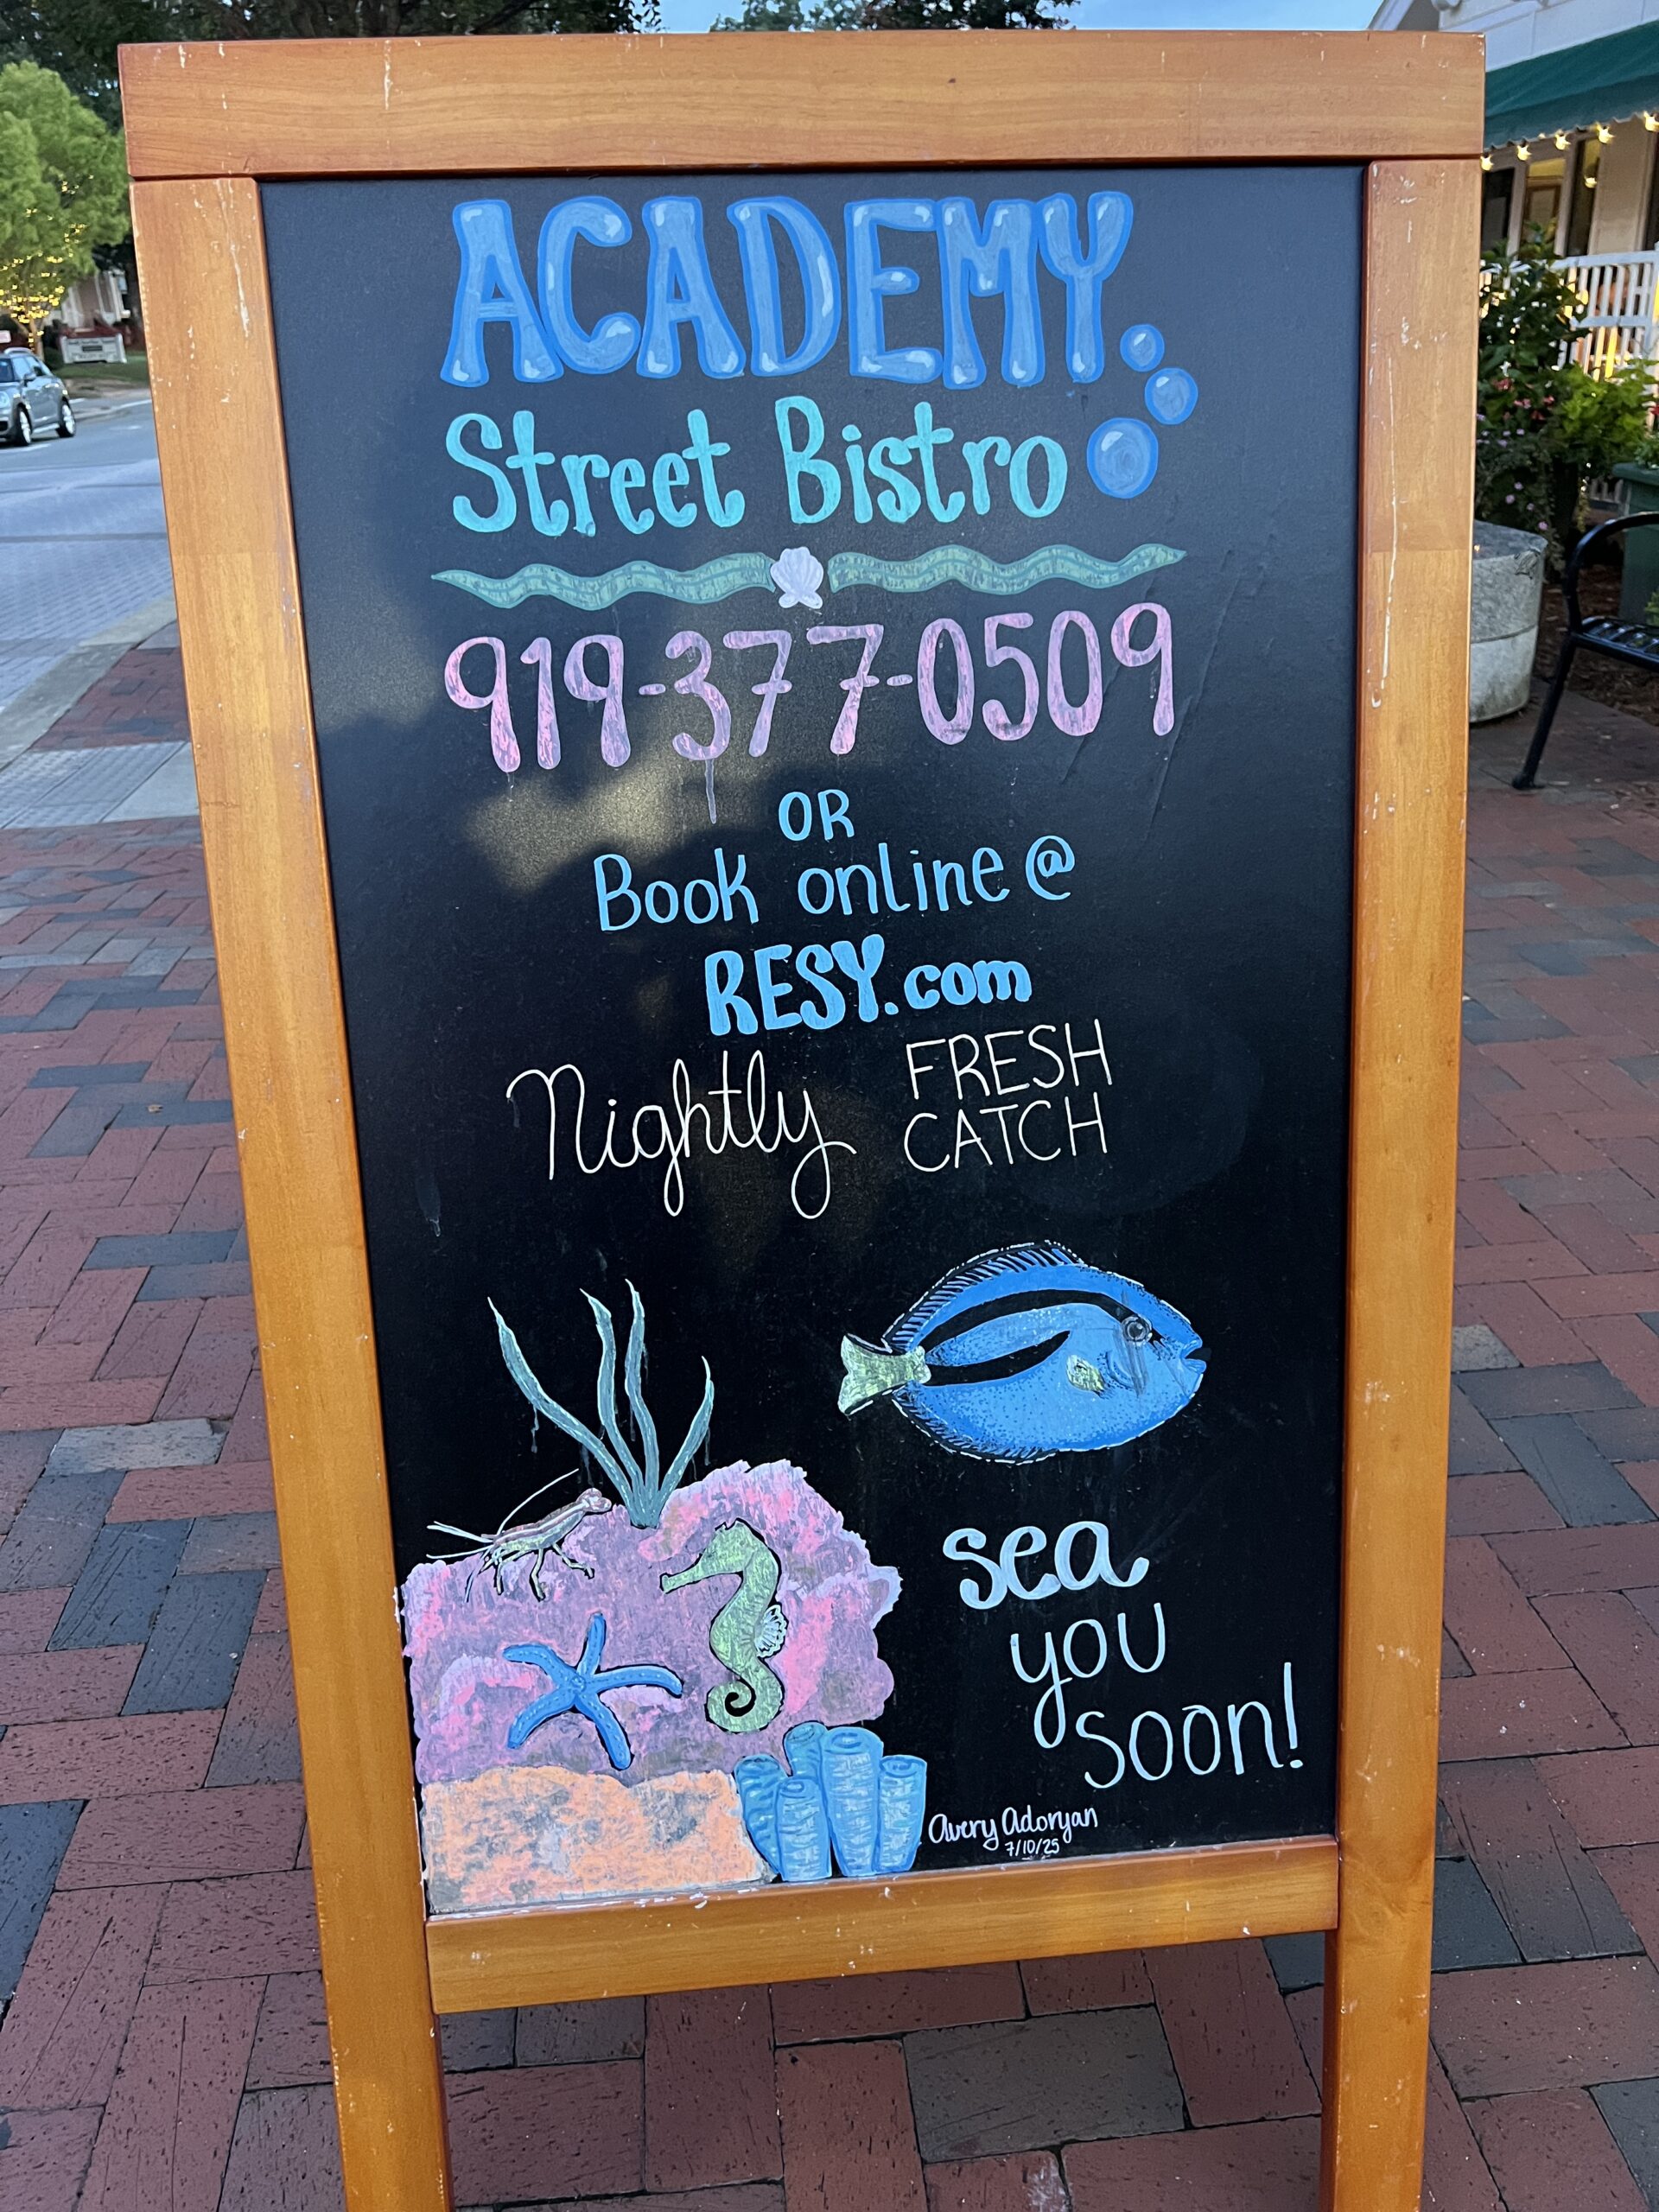 ACADEMY
Street Bistro
919-377-0509
OR
Book online @
RESY.com
Nightly FRESH
CATCH
sea
you
soon!
Avery Adoryan
7/10/25